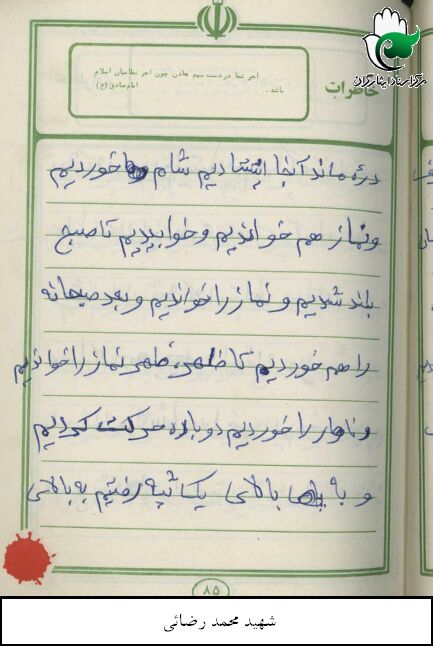 مرکز اسناد ایثارگران
خاطرات
اجر شما در دست سهم هادن چون اجر نظامیان اسلام
باشد.
امام صادق (ع)
دره ماند آنجا ایستادیم شام خوردیم
و نماز هم خواندیم و خوابیدیم تا صبح
بلند شدیم و نماز را خواندیم و بعد صبحانه
را هم خوردیم تا ظهر، ظهر نماز را خواندیم
و ناهار را خوردیم دوباره حرکت کردیم
و با بالای یک تپه رفتیم به بالای
۸۵
شهید محمد رضائی